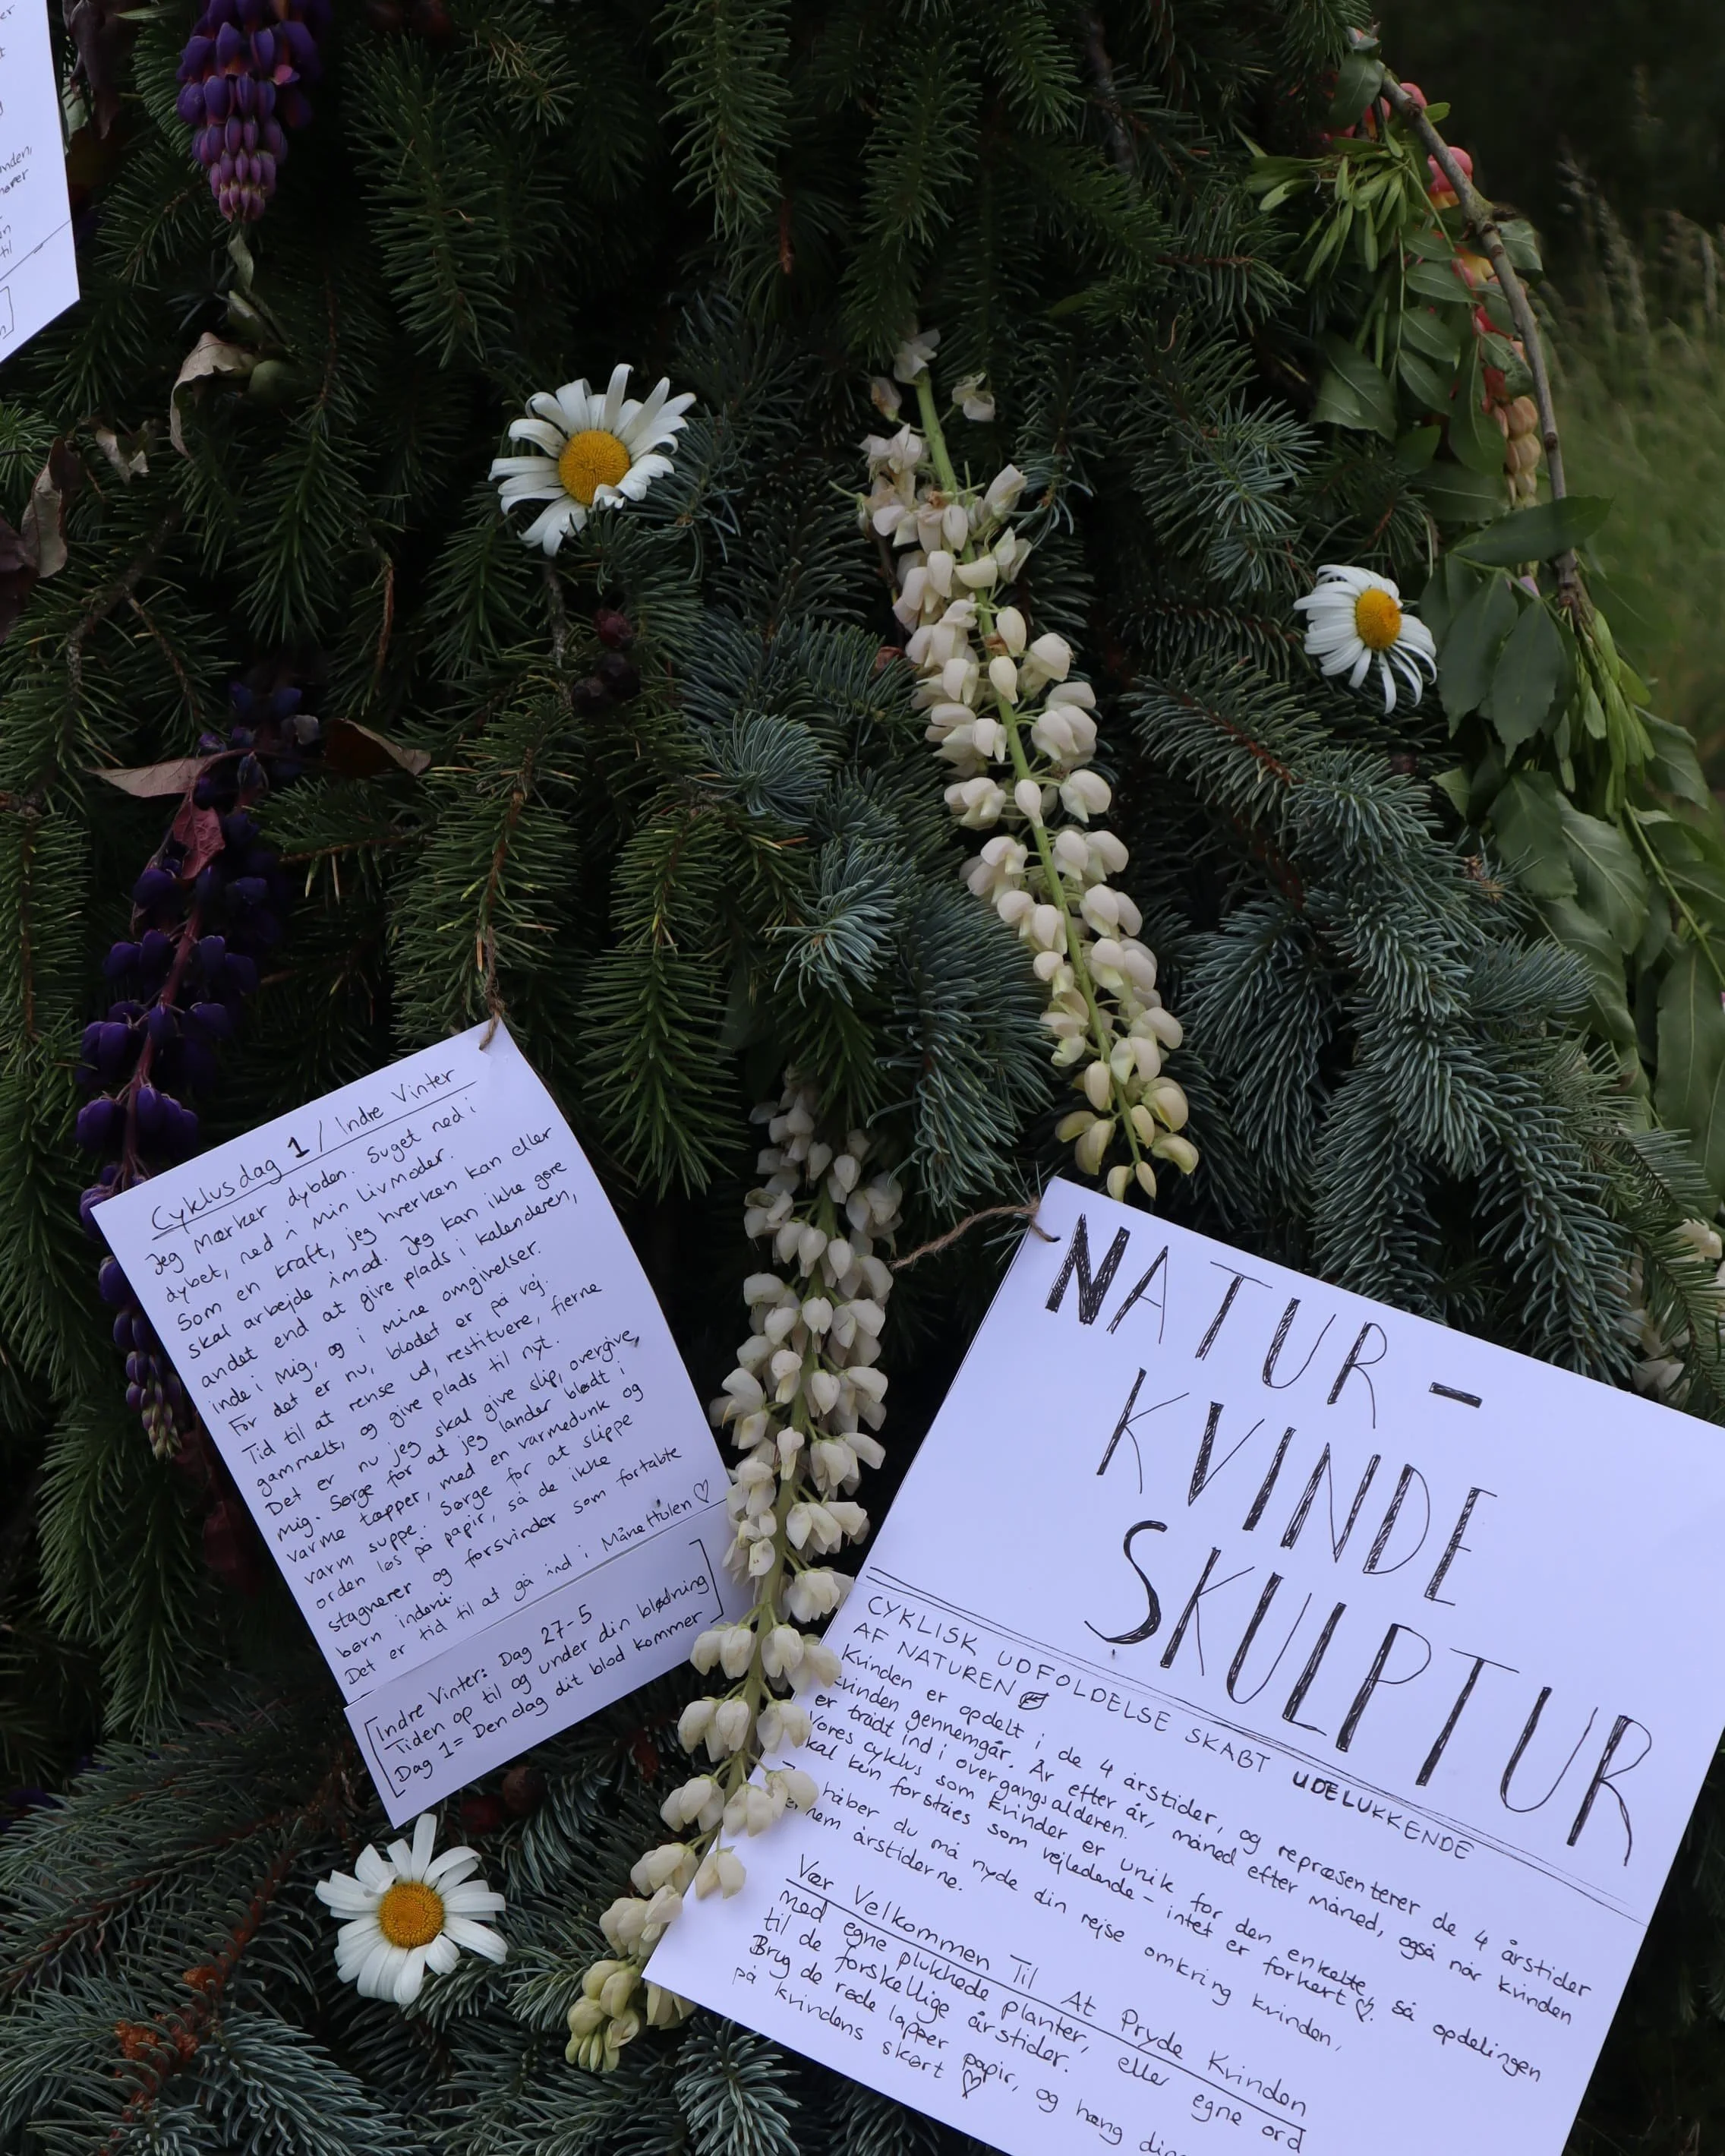 er
t
g
nden,
hører
n
til
n]
Cyklusdag 1 / Indre Vinter
Jeg mærker dybden. Suget ned i
dybet, ned i min livmoder.
Som en kraft, jeg hverken kan eller
skal arbejde imod. Jeg kan ikke gøre
andet end at give plads i kalenderen,
inde i mig, og i mine omgivelser.
For det er nu, blodet er på vej.
Tid til at rense ud, restituere, fjerne
gammelt, og give plads til nyt.
Det er nu jeg skal give slip, overgive,
mig. Sørge for at jeg lander blødt i
varme tæpper, med en varmedunk og
varm suppe. Sørge for at slippe
orden løs på papir, så de ikke
stagnerer og forsvinder som fortabte
børn indeni.
Det er tid til at gå ind i MåneHulen ♡
[Indre Vinter: Dag 27-5
Tiden op til og under din blødning
Dag 1 = Den dag dit blod kommer]
NATUR-
KVINDE
SKULPTUR
CYKLISK UDFOLDELSE SKABT UDELUKKENDE
AF NATUREN
Kvinden er opdelt i de 4 årstider, og repræsenterer de 4 årstider
kvinden gennemgår. År efter år, måned efter måned, også når kvinden
er trådt ind i overgangsalderen.
Vores cyklus som kvinder er unik for den enkelte, så opdelingen
skal kun forståes som vejledende - intet er forkert ♡.
håber du må nyde din rejse omkring kvinden,
nem årstiderne.
Vær Velkommen Til At Pryde Kvinden
med egne plukkede planter, eller egne ord
til de forskellige årstider.
Brug de røde lapper papir, og hæng din
på kvindens skørt ♡